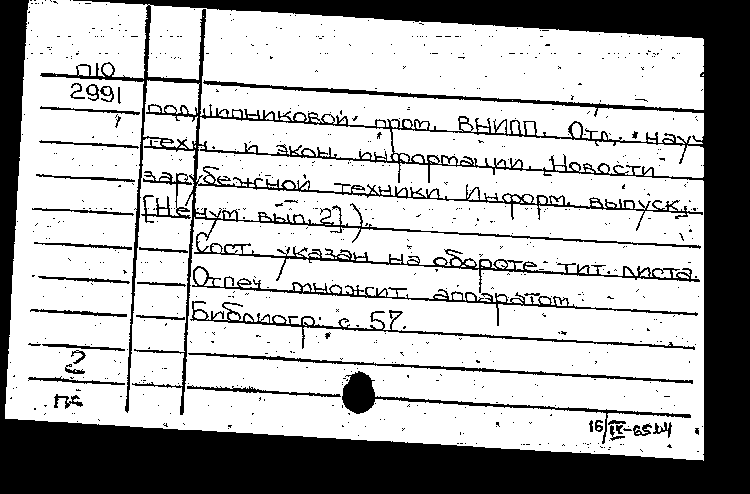 П10
2991
подшипниковой пром. ВНИПП. Отд. науч
техн. и экон. информации. Новости
зарубежной техники. Информ. выпуск.
[Ненум. вып. 2].).
Сост. указан на обороте тит. листа.
Отпеч. множит. аппаратом.
Библиогр: с. 57.
2
16/IX-65